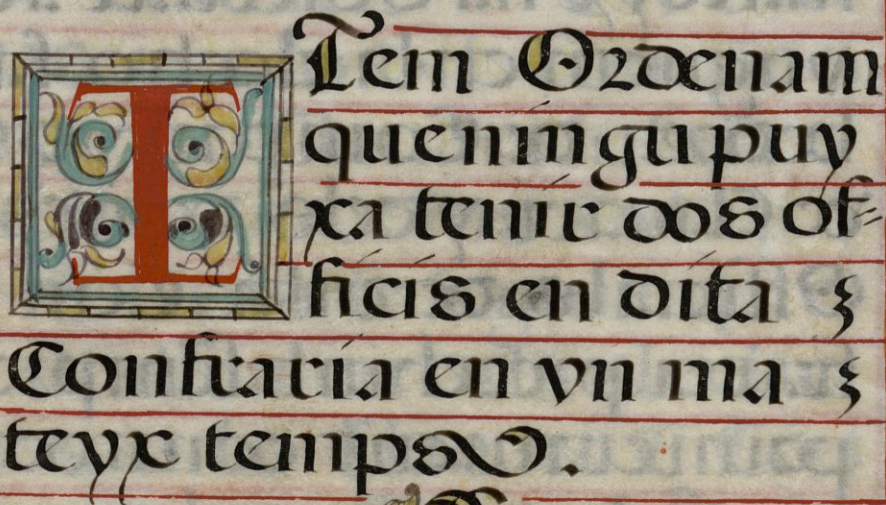 Item Ordenam
que ningu puy
xa tenir dos of=
ficis en dita
Confraria en vn ma
teyx temps.